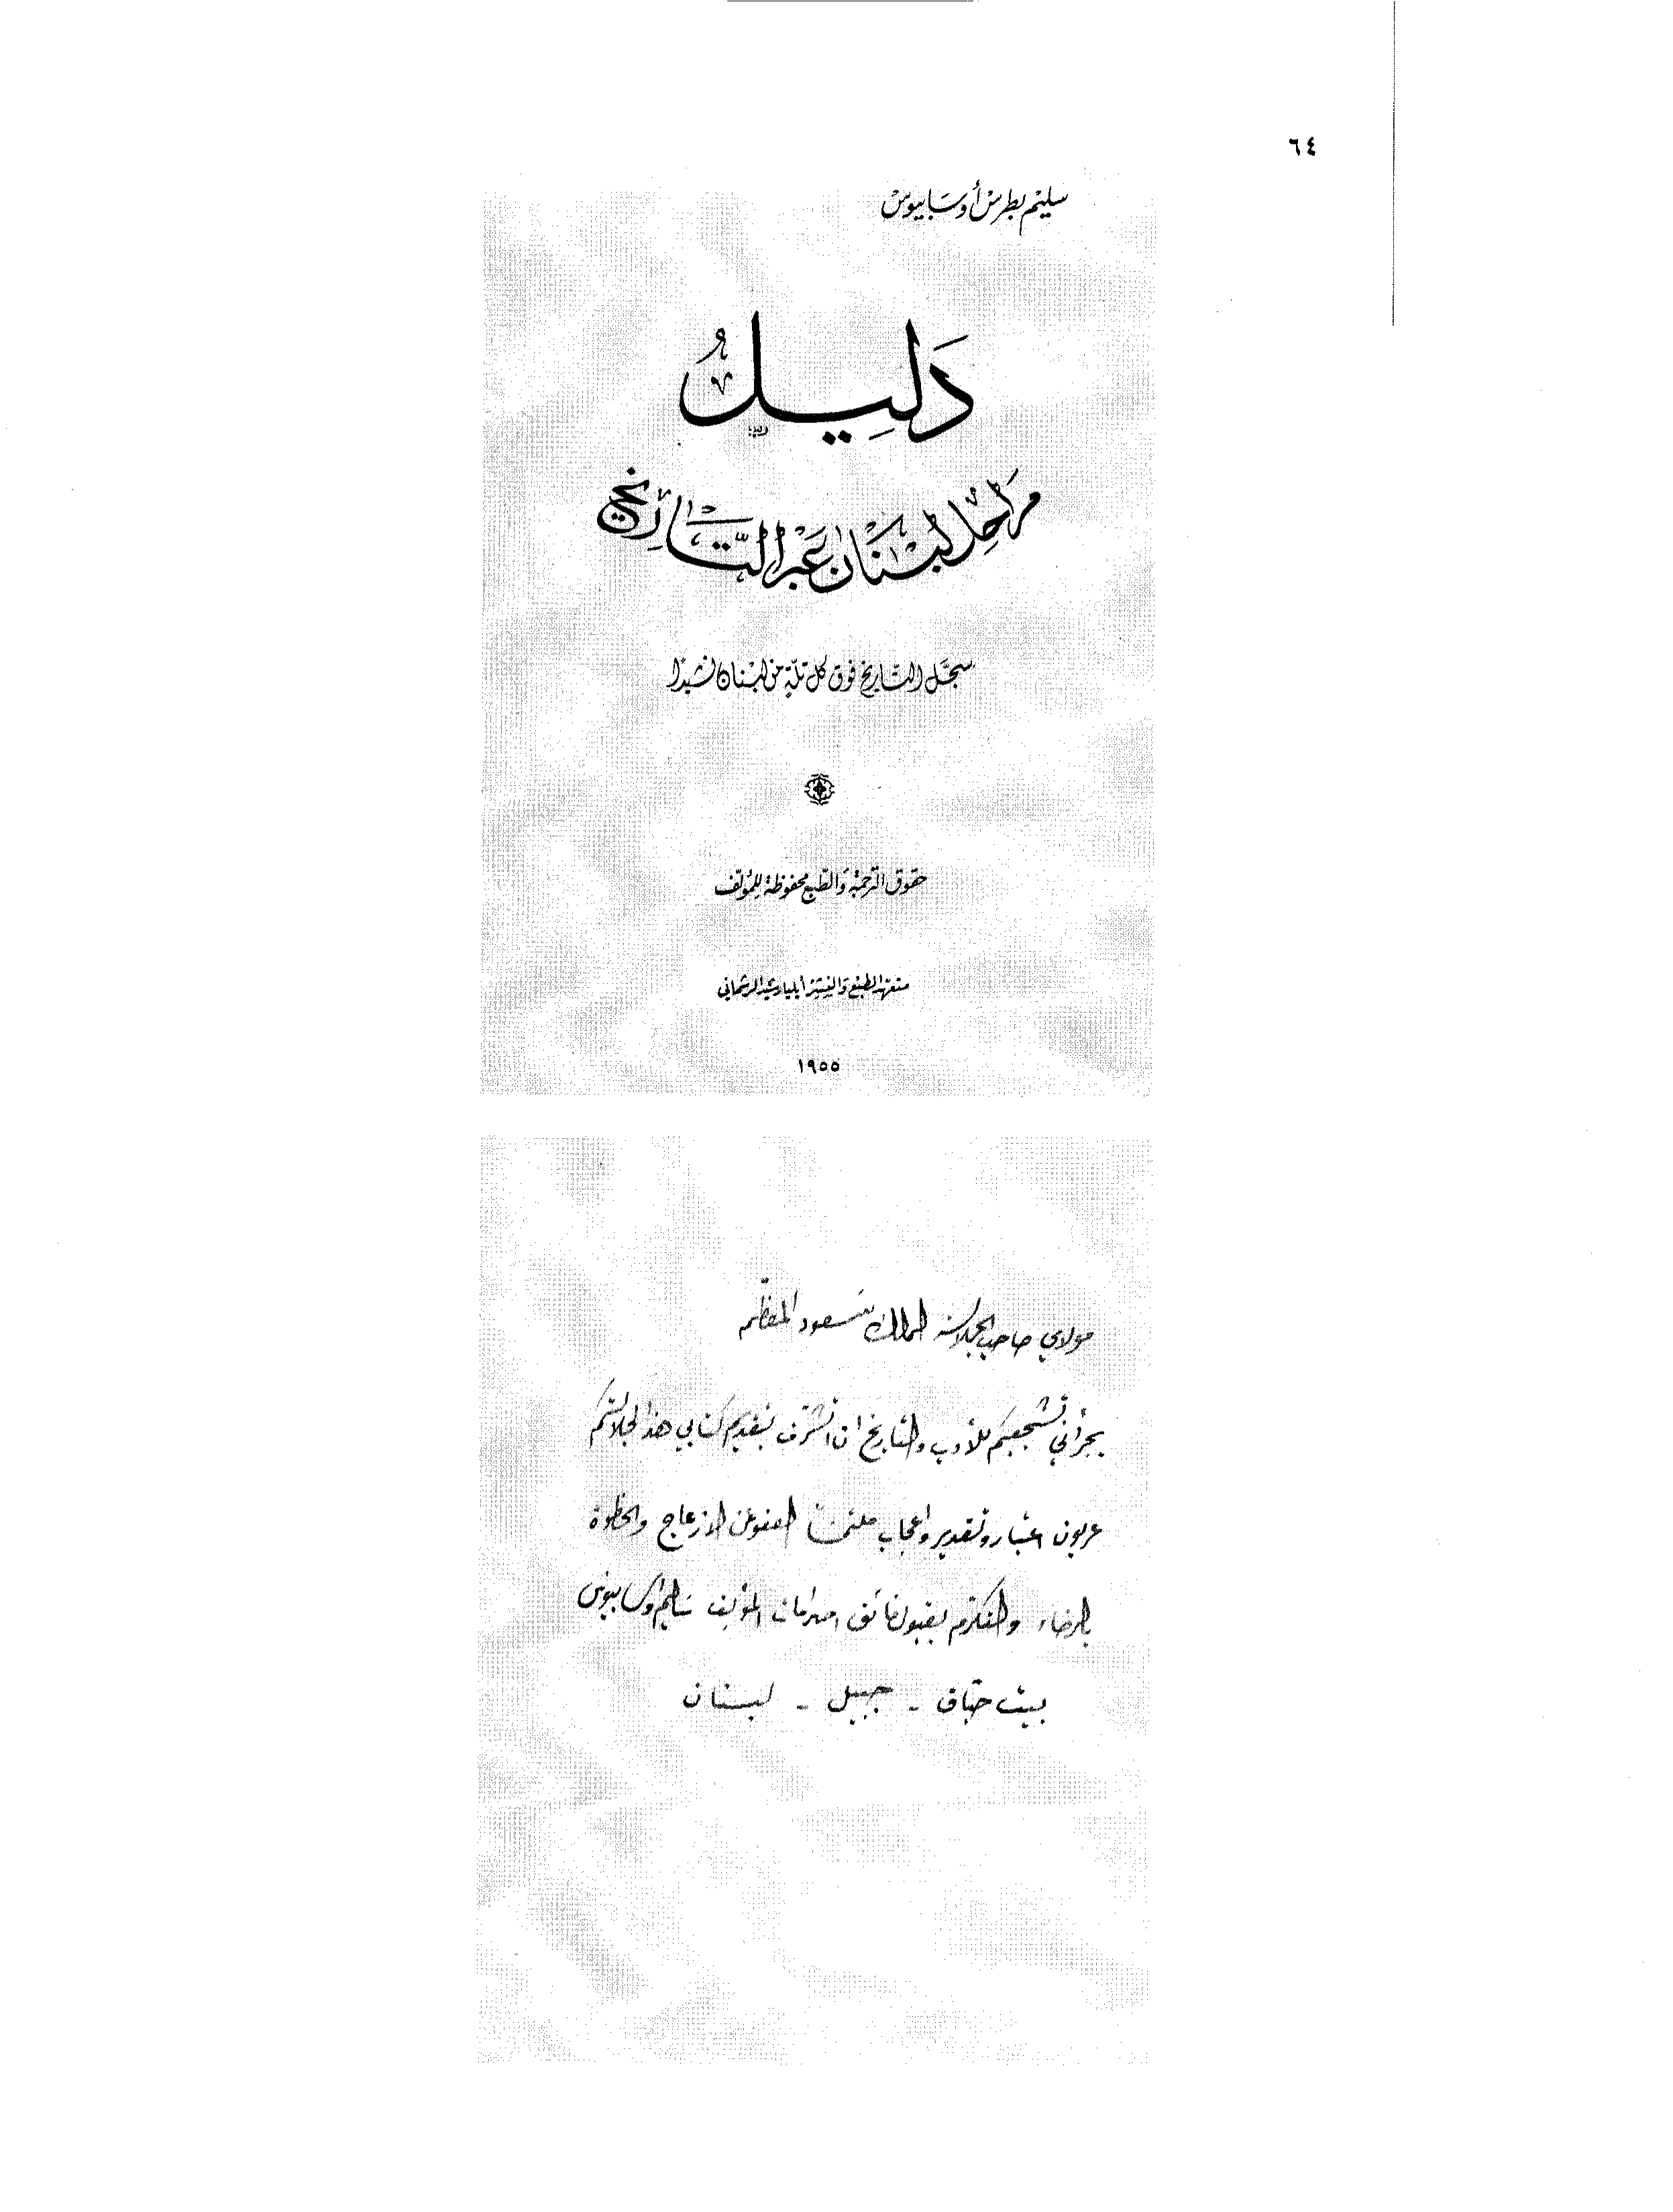 ٦٤
سليم بطرس أوسابيوس
دَليلُ
مراحل لبنان عبر التاريخ
سجّل التاريخ فوق كل تلّةٍ من لبنان نشيدًا
حقوق الترجمة والطبع محفوظة للمؤلف
متعهد الطبع والنشر ايليا رشيد الرشماني
١٩٥٥
مولاي صاحب الجلالة الملك سعود المعظّم
يجرأني تشجيعكم للأدب والتاريخ ان اتشرّف بتقديم كتابي هذا لجلالتكم
عربون اعتبار وتقدير واعجاب ملتمسًا العفو عن الازعاج والحظوة
بالرضاء والتكرّم بقبول فائق احترامات المؤلف سليم اوسابيوس
بيت حبّاق - جبيل - لبنان